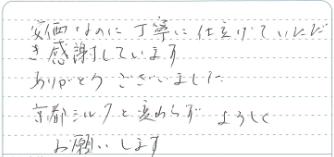 安価なのに丁寧に仕立げていただ
き感謝しています
ありがとうございました
京都シルクと変わらず よろしく
お願いします